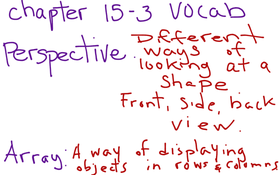 chapter 15-3 Vocab
Perspective. Different
ways of
looking at a
shape
Front, side, back
view.
Array: A way of displaying
objects in rows & columns